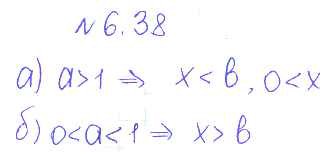 №6.38
а) a>1 ⇒ x<в, 0<x
б) 0<a<1 ⇒ x>в